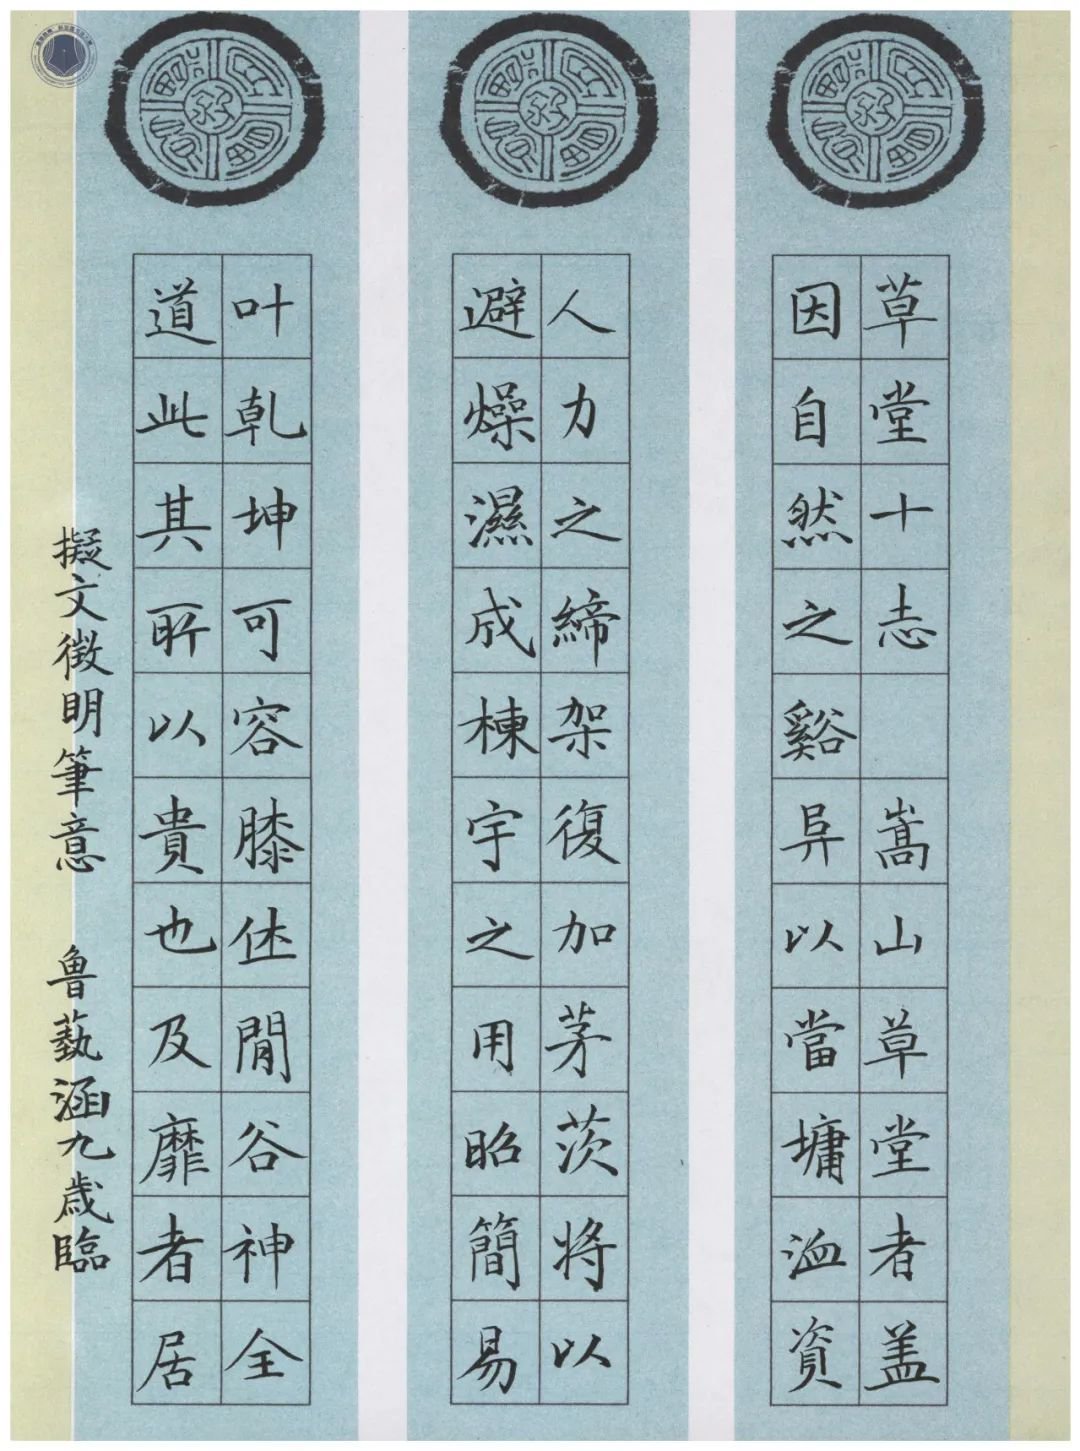 草堂十志 嵩山草堂者盖
因自然之谿𠔏以當墉洫資
人力之締架復加茅茨将以
避燥濕成棟宇之用昭簡易
叶乾坤可容膝休閒谷神全
道此其所以貴也及靡者居
擬文徵明筆意 魯藝涵九歲臨